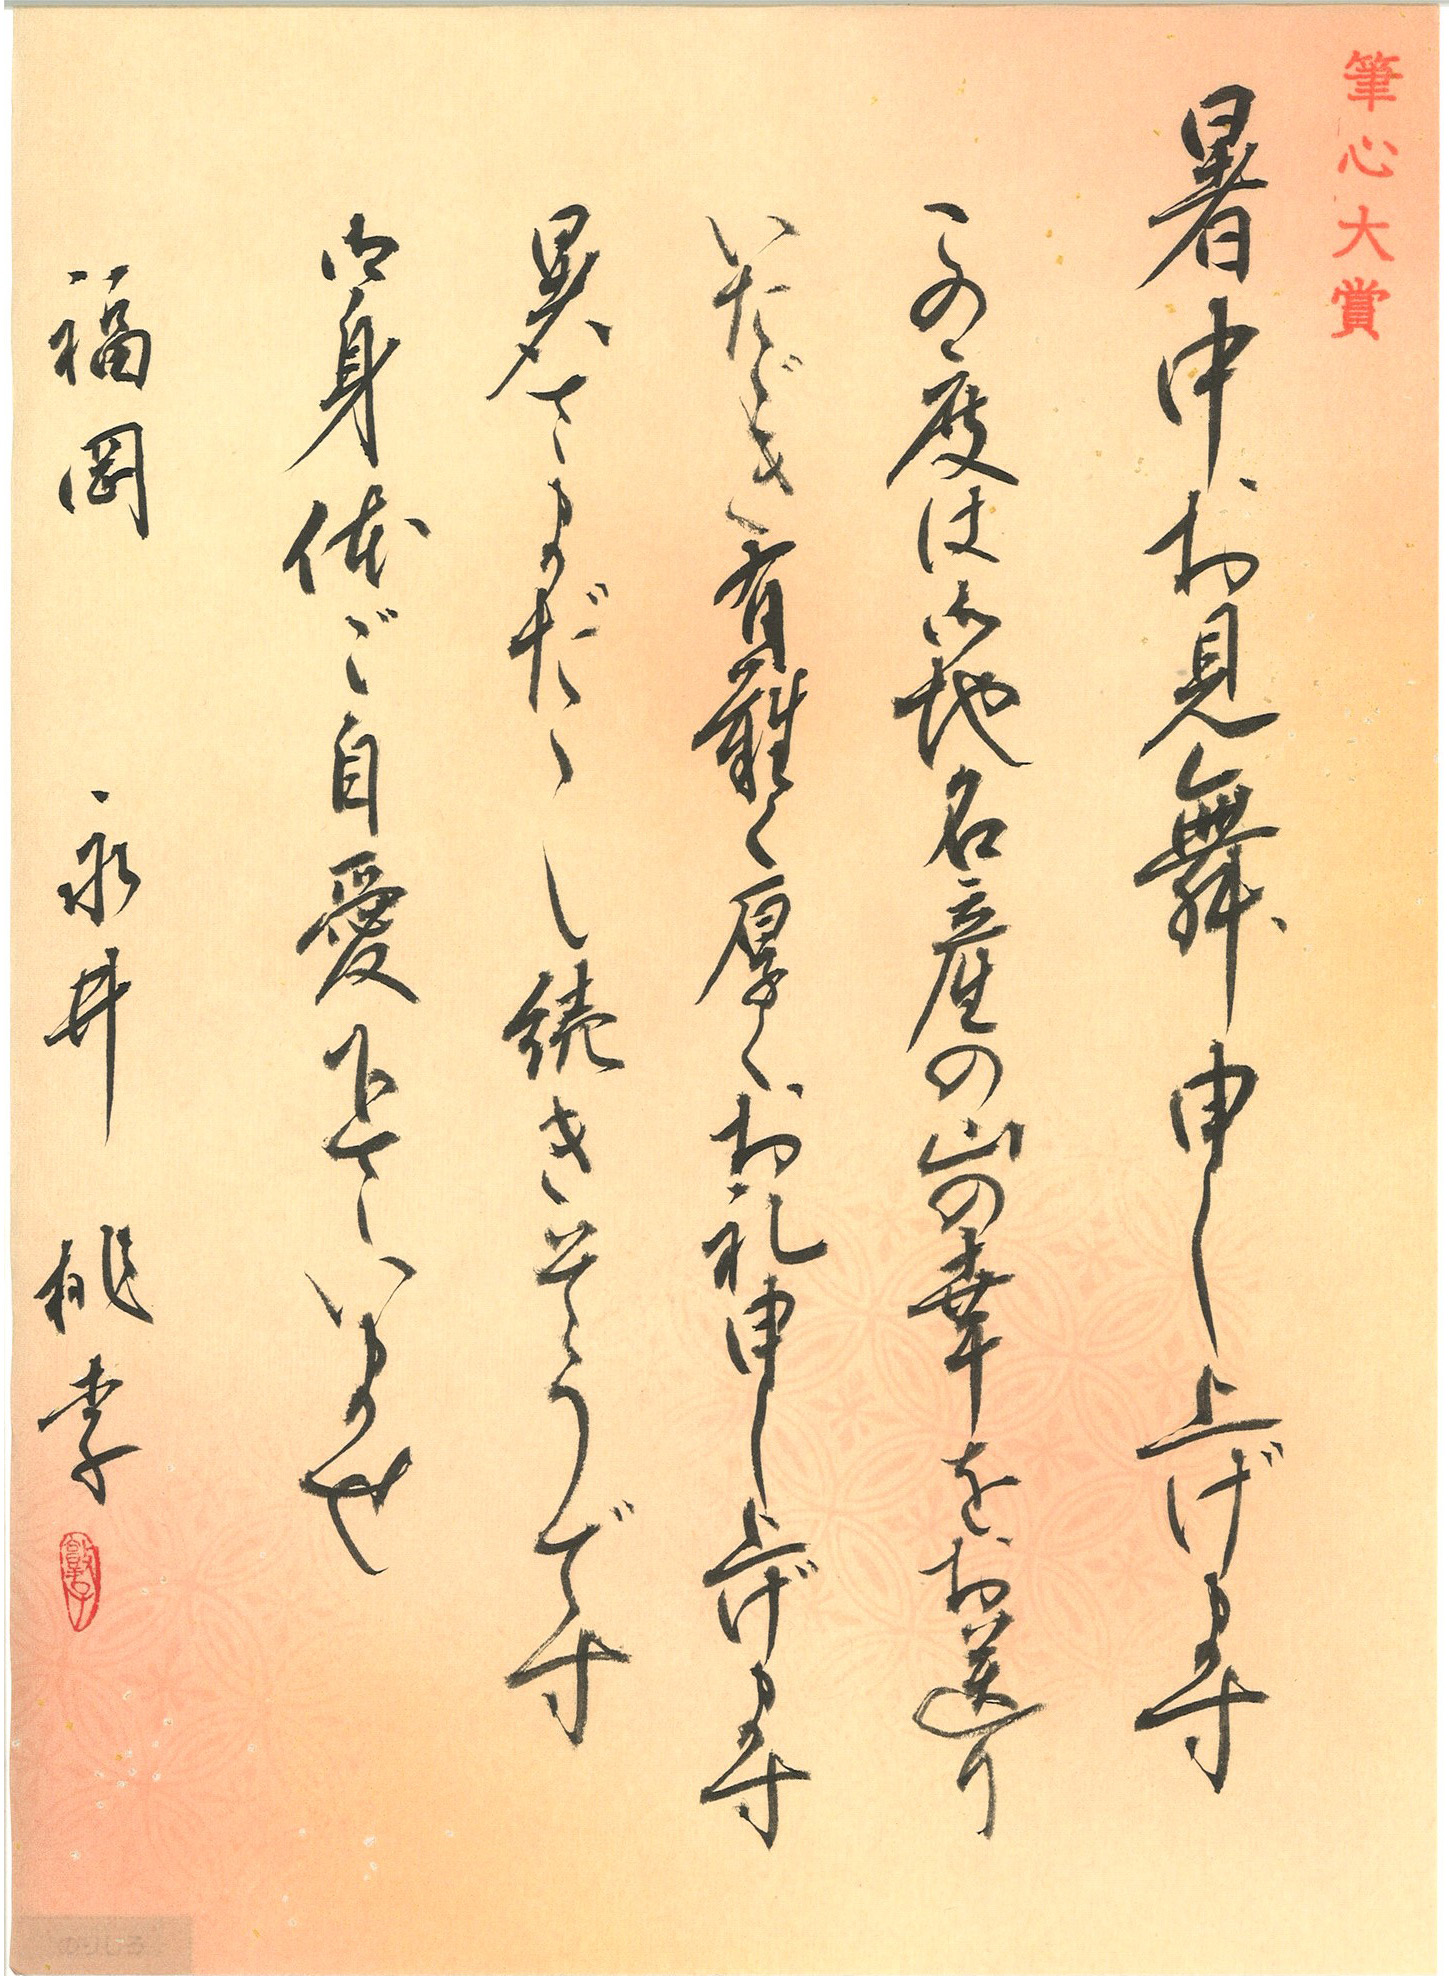 筆心大賞
暑中お見舞申し上げます
この度は御地名産の山の幸をお送り
いただき有難く厚くお礼申し上げます
暑さまだ〳〵続きそうです
御身体ご自愛下さいませ
福岡 永井 桃李
敦子